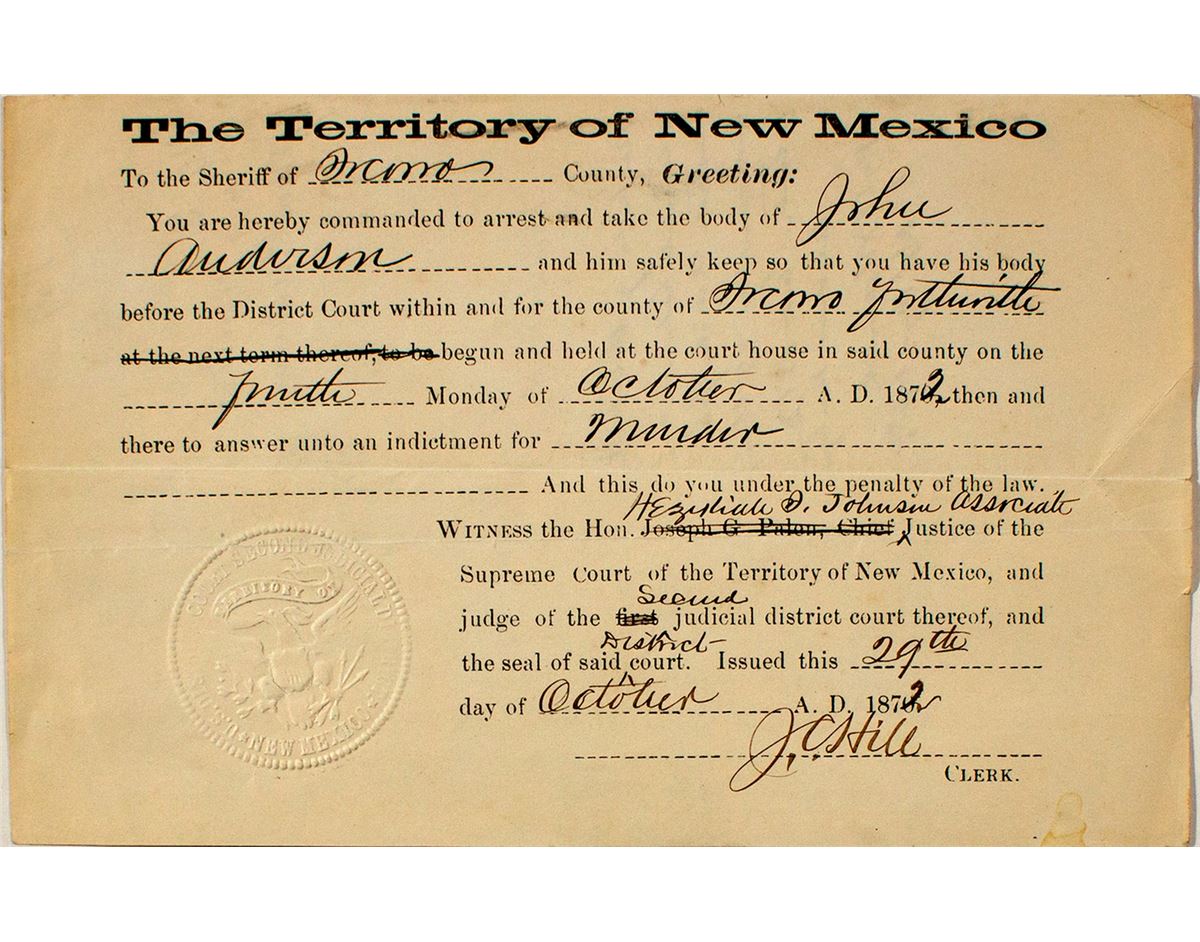 The Territory of New Mexico
To the Sheriff of Socorro County, Greeting:
You are hereby commanded to arrest and take the body of John
Anderson and him safely keep so that you have his body
before the District Court within and for the county of Socorro forthwith
at the next term thereof, to be begun and held at the court house in said county on the
fourth Monday of October A. D. 1872, then and
there to answer unto an indictment for Murder
And this do you under the penalty of the law.
Hezekiah S. Johnson Associate
WITNESS the Hon. Joseph G Palen, Chief Justice of the
Supreme Court of the Territory of New Mexico, and
Second
judge of the first judicial district court thereof, and
District
the seal of said court. Issued this 29th
day of October A. D. 1872
J. C. Hill
CLERK.
SECOND JUDICIAL
TERRITORY OF
NEW MEXICO